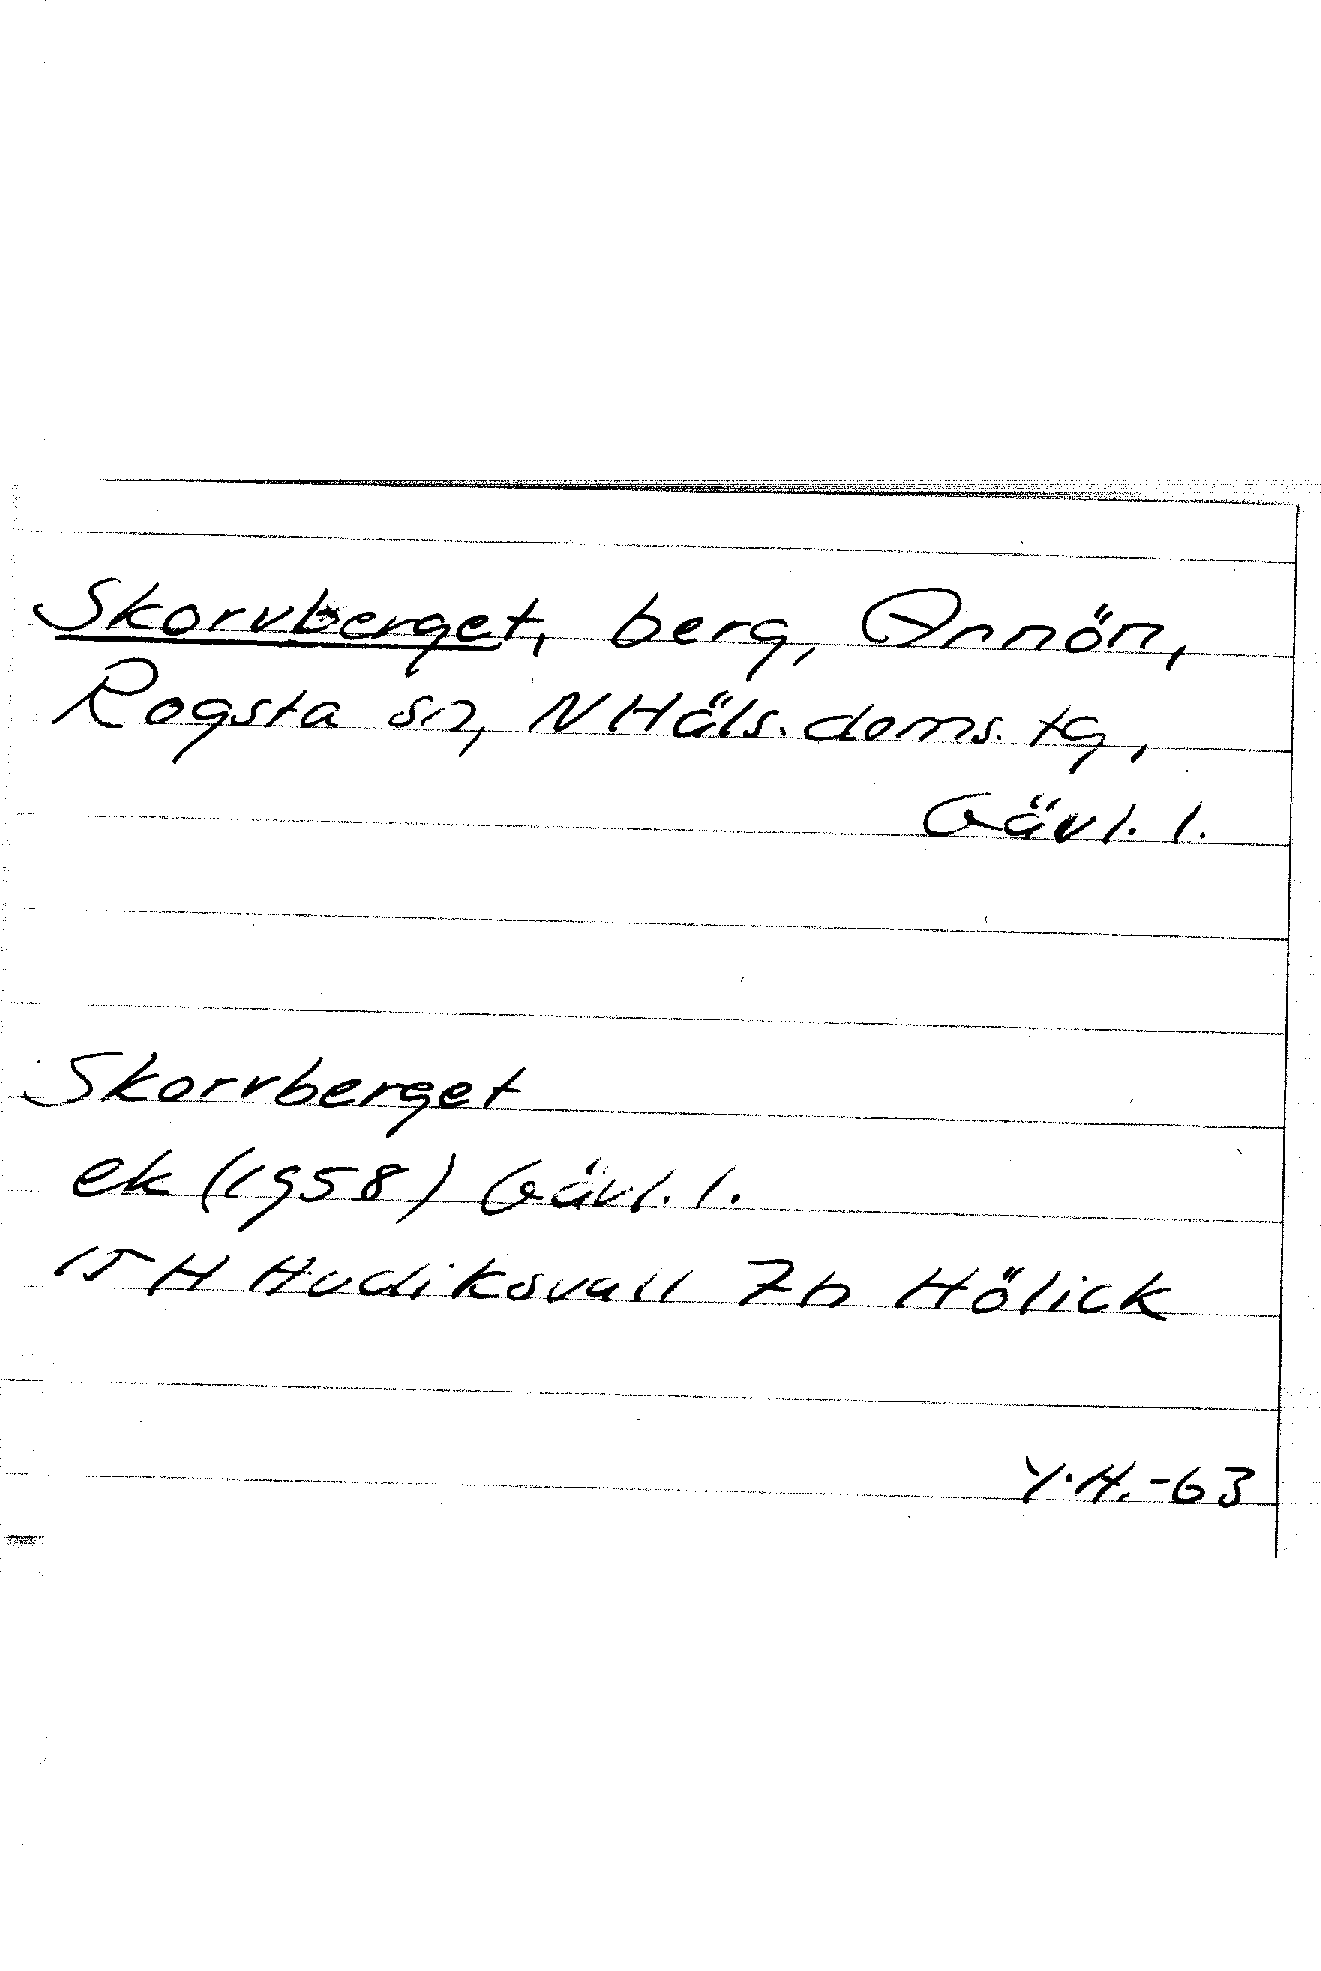 Skorvberget, berg, Arnön,
Rogsta sn, N Häls. doms. tg,
Gävl. l.
Skorvberget
ek (1958) Gävl. l.
15 H Hudiksvall 7h Hölick
Y.H. -63